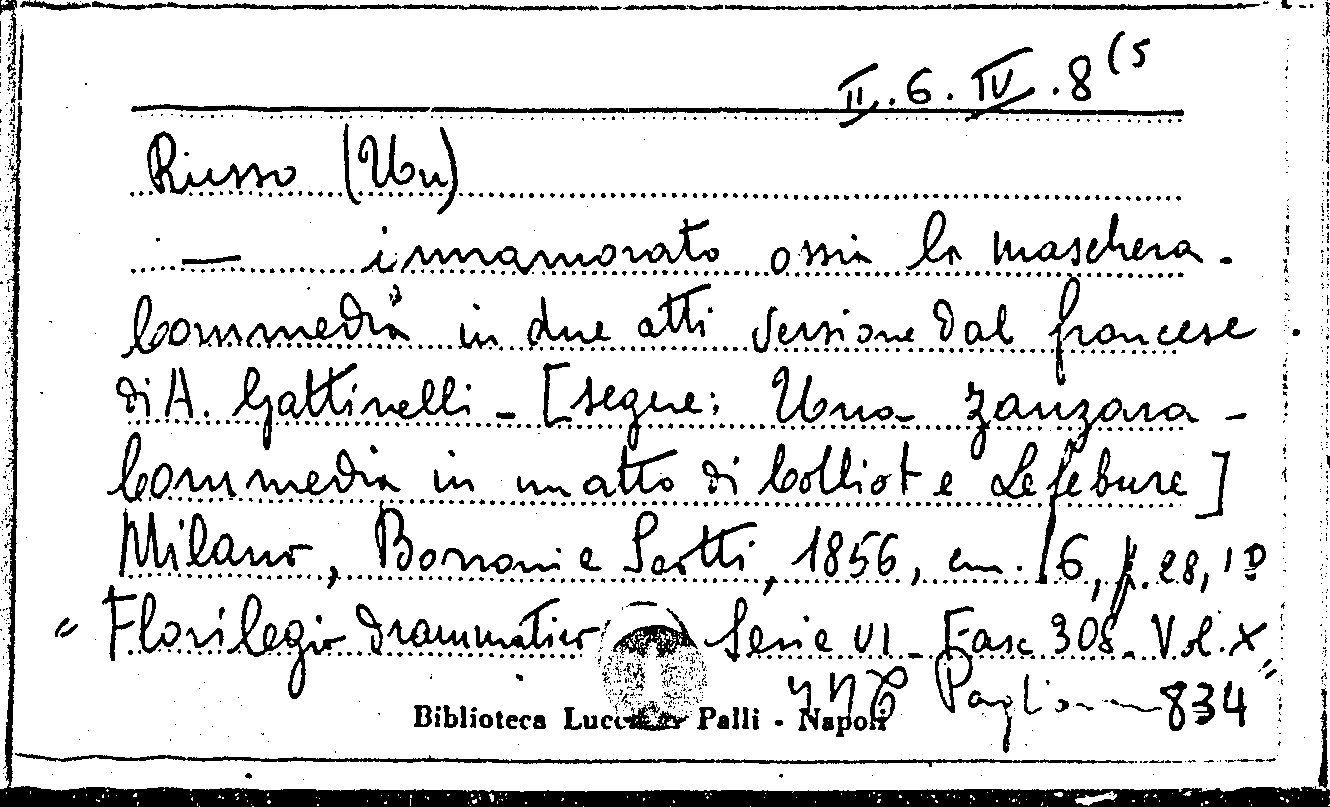 II.6.IV.8(5
Russo (Un)
— innamorato ossia la maschera.
Commedia in due atti versione dal francese.
di A. Gattinelli - [segue: Una zanzara -
Commedia in un atto di Colliot e Lefebure]
Milano, Borroni e Scotti, 1856, cm. 16, p. 28, 1º
"Florilegio drammatico Serie VI - Fasc 308 - Vol. X"
834
Biblioteca Lucchesi Palli - Napoli